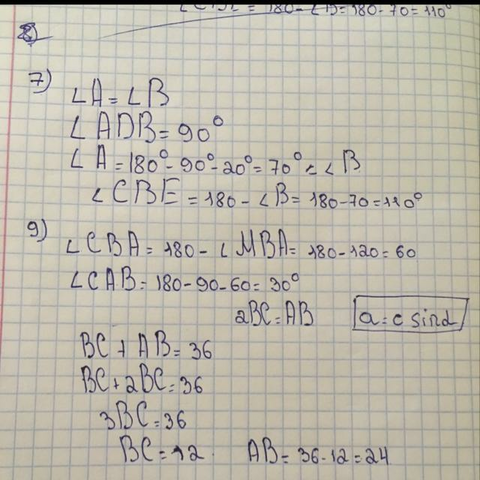 ∠CBE = 180 - ∠B = 180 - 70 = 110°
7)
∠A = ∠B
∠ADB = 90°
∠A = 180° - 90° - 20° = 70° = ∠B
∠CBE = 180 - ∠B = 180 - 70 = 110°
9)
∠CBA = 180 - ∠MBA = 180 - 120 = 60
∠CAB = 180 - 90 - 60 = 30°
2BC = AB
a = c sinα
BC + AB = 36
BC + 2BC = 36
3BC = 36
BC = 12 AB = 36 - 12 = 24